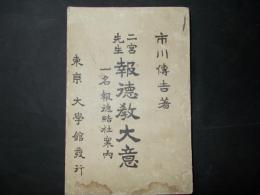 市川傳吉著
二宮先生
報德教大意
一名報德結社案内
東京 大學館發行